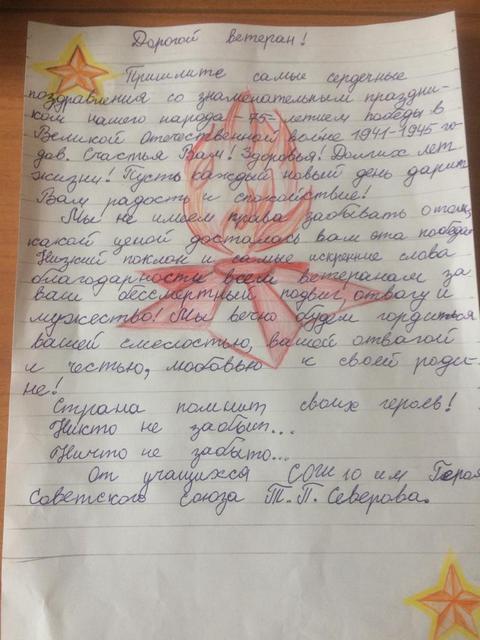 Дорогой ветеран!
Примите самые сердечные
поздравления со знаменательным праздни-
ком нашего народа -75- летием победы в
Великой Отечественной войне 1941-1945 го-
дов. Счастья Вам! Здоровья! Долгих лет
жизни! Пусть каждый новый день дарит
Вам радость и спокойствие!
Мы не имеем права забывать о том,
какой ценой досталась вам эта победа.
Низкий поклон и самые искренние слова
благодарности всем ветеранам за
ваш бессмертный подвиг, отвагу и
мужество! Мы вечно будем гордиться
вашей смелостью, вашей отвагой
и честью, любовью к своей роди-
не!
Страна помнит своих героев!
Никто не забыт...
Ничто не забыто...
От учащихся СОШ 10 им Героя
Советского Союза Т.П. Северова.